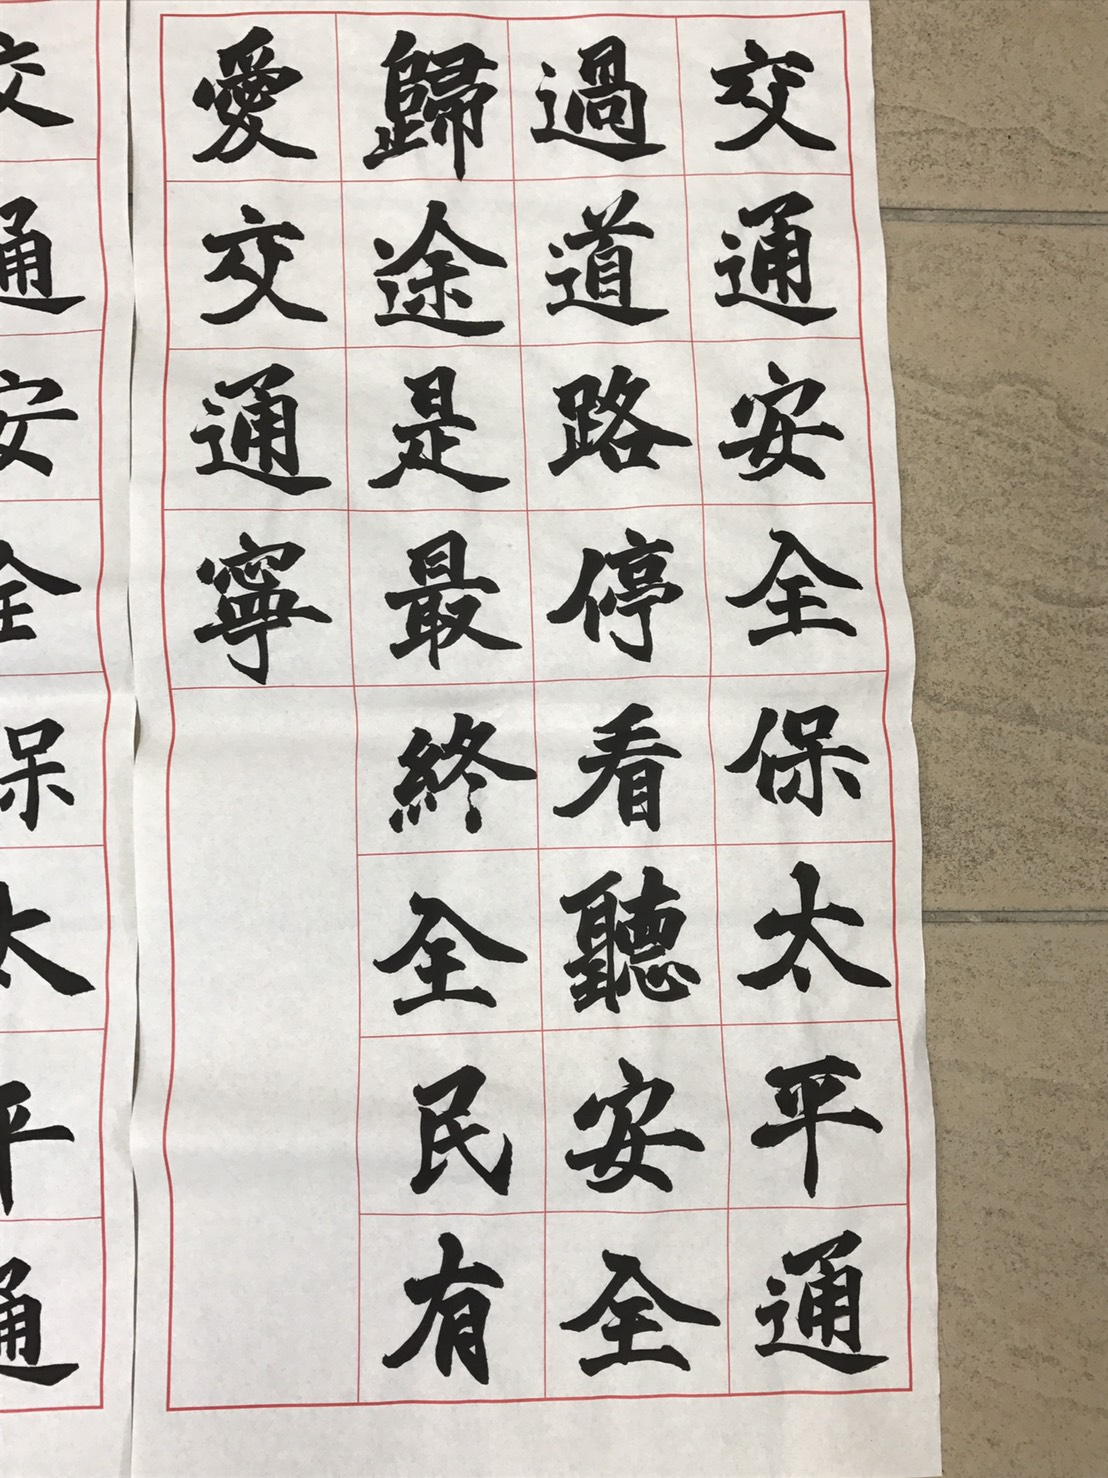 交通安全保太平通
過道路停看聽安全
歸途是最終全民有
愛交通寧
交通安全保太平通